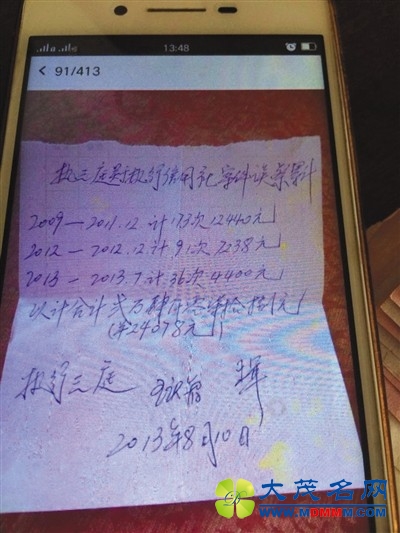 13:48
91/413
执三庭对执行信用社案件误餐累计
2009—2011.12.计173次12440元
2012—2012.12.计91次7238元
2013—2013.7计36次4400元
以计合计贰万肆仟零柒拾捌元
(¥24078元)
执行三庭
2013年8月10日
大茂名网
MDMMM.COM